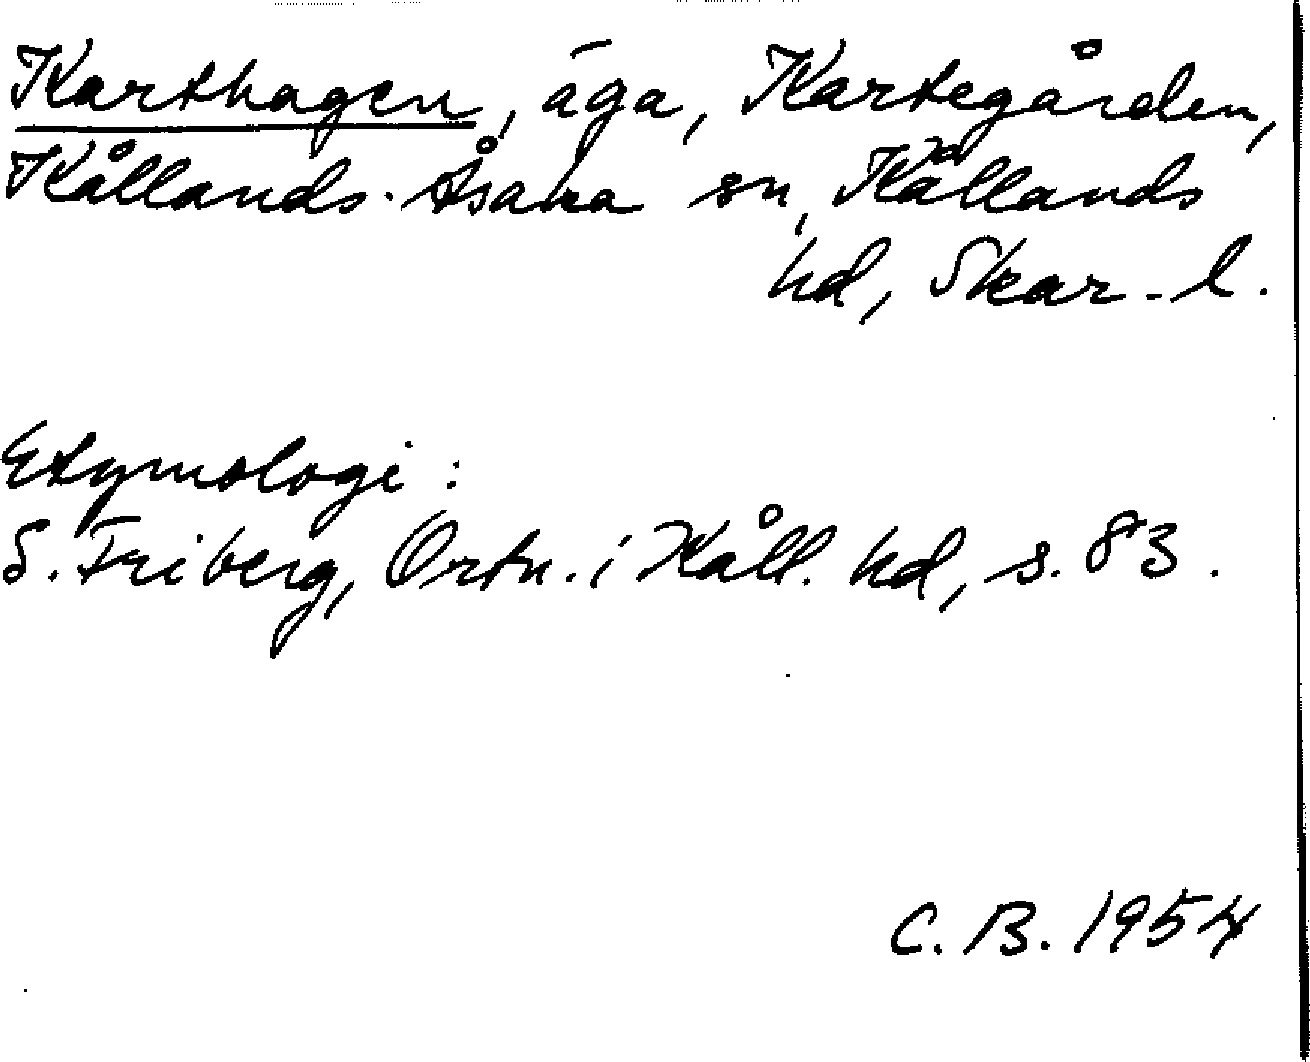 Karthagen, äga, Kartegården,
Kållands-Åsaka sn, Kållands
hd, Skar. l.
Etymologi:
S. Friberg, Ortn. i Kåll. hd, s. 83.
C. B. 1954